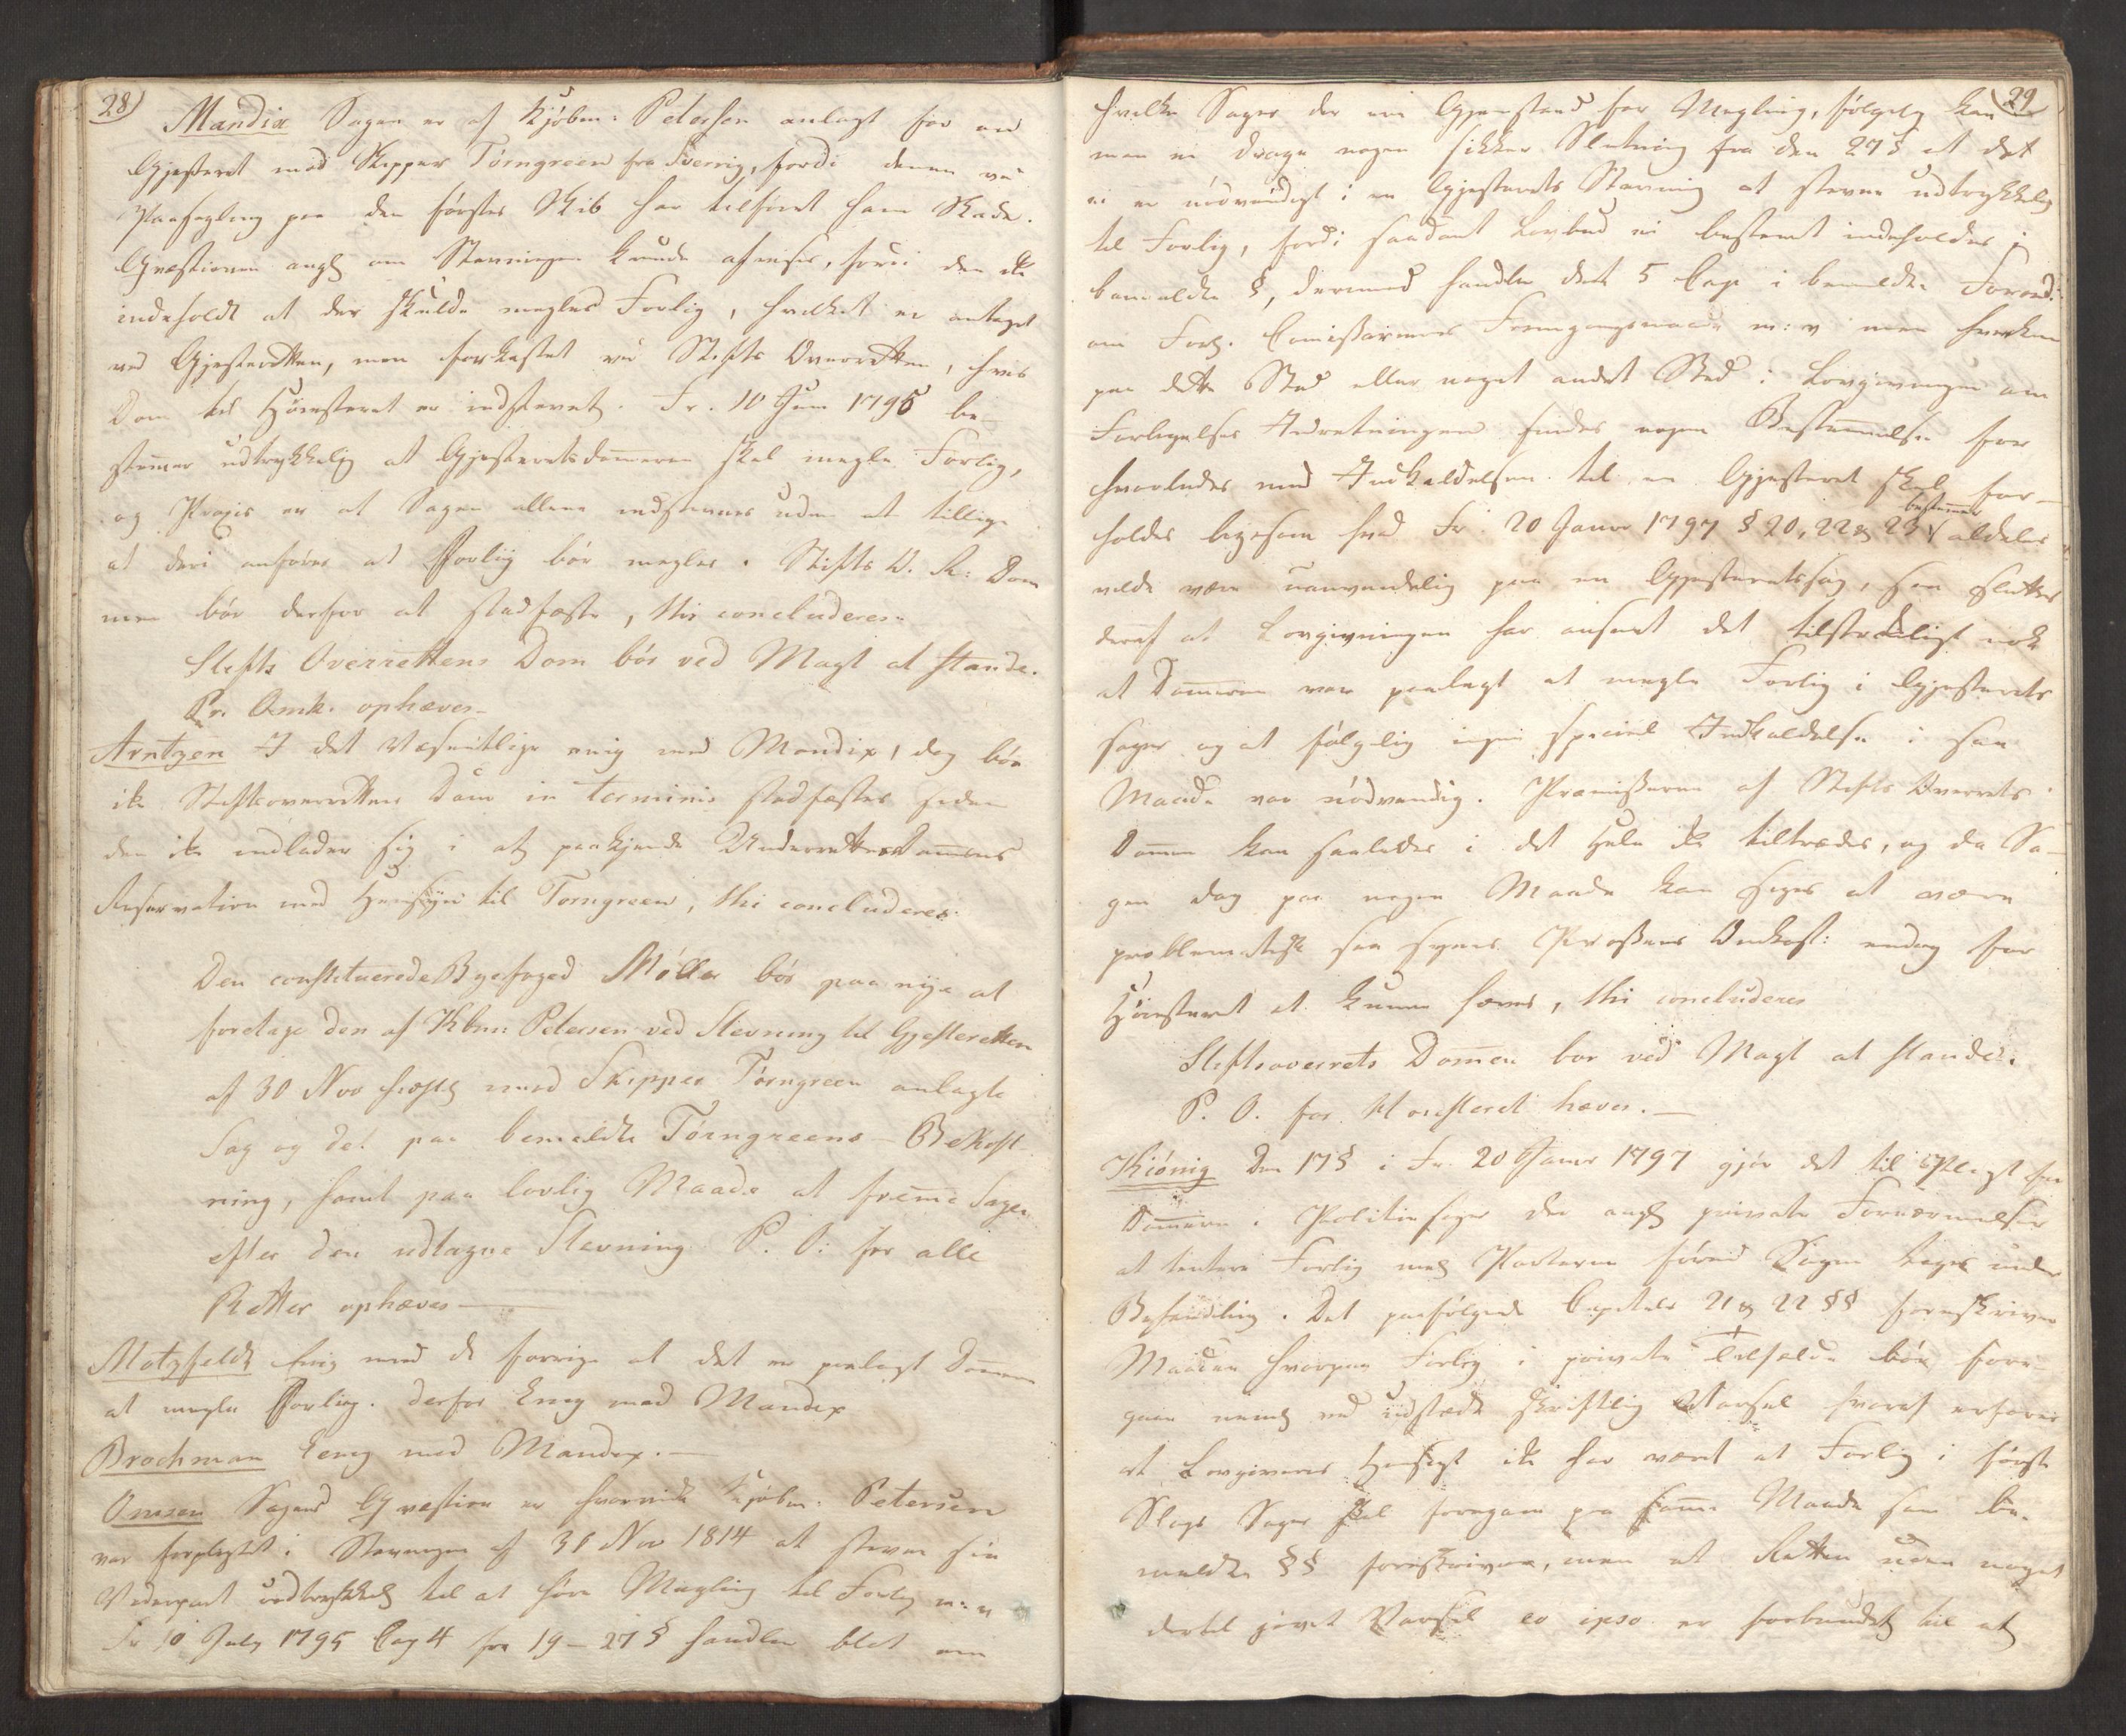 28)
Mandix Sagen er af Kjøbm: Petersen anlagt for en
Gjesteret mod Skipper Törngreen fra Sverrig, fordi denne ved
Paaseigling paa den førstes Skib har tilføiet ham Skade.
Qvæstionen angl om Stevningen kunde afvises, fordi den ike
indeholdt at der skulde megles Forlig, hvilket er antaget
ved Gjesteretten, men forkastet ved Stifts Overretten, hvis
Dom til Høiesteret er indstevnet. Fr. 10 Jun 1795 be-
stemer udtrykkelig at Gjesteretsdomeren skal megle Forlig,
og Praxis er at Sagen allene indstevnes uden at tillige
at deri anføres at Forlig bör megles. Stifts O. R: Dom
men bör derfor at stadfæste, thi concluderes:
Stifts Overrettens Dom bör ved Magt at stande.
Pr. Omk. ophæves.
Arntzen I det Væsentlige enig med Mandix, dog bör
ike Stiftsoverrettens Dom in terminis stadfæstes siden
den ike indlader sig i at paakjende Underretts Domerens
Reservation med Hensyn til Torngreen, thi concluderes:
Den constituerede Byefoged Möller bör paa nye at
foretage den af Kbm: Petersen ved Stevning til Gjesteretten
af 30 Nov næstl mod Skipper Törngreen anlagte
Sag og det paa bemeldte Törngreens Bekost
ning, samt paa lovlig Maade at freme Sagen
efter den udtagne Stevning P. O: for alle
Retter ophæves
Motzfeldt Enig med de forrige at det er paalagt Domeren
at megle Forlig. derfor Enig med Mandix
Brochman Eenig med Mandix.
Omsen Sagens Qvæstion er hvorvidt Kjøbm: Petersen
var forpligtet i Stevningen af 30 Nov 1814 at stevne sin
Vederpart udtrykkel til at høre Megling til Forlig m: v
Fr 10 July 1795 Cap 4 fra 19 – 27 § handler blot om
29
hvilke Sager der ere Gjenstand for Megling, følgelig kan
man ei drage nogen sikker Slutning fra den 27 § at det
ei er nödvendigt i en Gjesterets Stevning at stevne udtrykkelig
til Forlig, fordi saadant Lovbud ei bestemt indeholdes i
bemeldte §, derimod handler dets 5 Cap i bemeldte Forord:
om Forl. Comissairernes Fremgangsmaade m: v men hverken
paa dette Sted eller noget andet Sted i Lovgivningen om
Forligelses Indretningen findes nogen Bestemmelse for
hvorledes med Indkaldelsen til en Gjesteret skal for-
holdes ligesom hvad Fr: 20 Janr 1797 § 20, 22 & 23 bestemmer aldeles
vilde være uanvendelig paa en Gjesteretssag, saa sluttes
deraf at Lovgivningen har anseet det tilstrækkeligt nok
at Domeren var paalagt at megle Forlig i Gjesterets
sager og at følgelig ingen speciel Indkaldelse i saa
Maade var nödvendig. Præmisserne af Stifts Overrets
Domen kan saaledes i det Hele ike tiltrædes, og da Sa-
gen dog paa nogen Maade kan siges at være
problematisk saa synes Processens Omkost: endog for
Høiesteret at kunne hæves, thi concluderes
Stiftsoverrets Domen bor ved Magt at stande.
P. O. for Høiesteret hæves.
Kiönig Den 17 § i Fr. 20 Janr 1797 gjör det til Pligt for
Domeren i Politiesager der angl private Fornærmelser
at tentere Forlig mel Parterne förend Sagen tages under
Behandling. Det paafølgende Capitels 21 & 22 §§ foreskriver
Maaden hvorpaa Forlig i private Tilfælde bör fore-
gaae neml ved udstædt skriftlig Varsel hvoraf erfares
at Lovgiverens Hensigt ike har været at Forlig i første
Slags Sager skal foregaae paa same Maade som be-
meldte §§ foreskriver, men at Retten uden noget
dertil givet Varsel eo ipso er forbundet til at